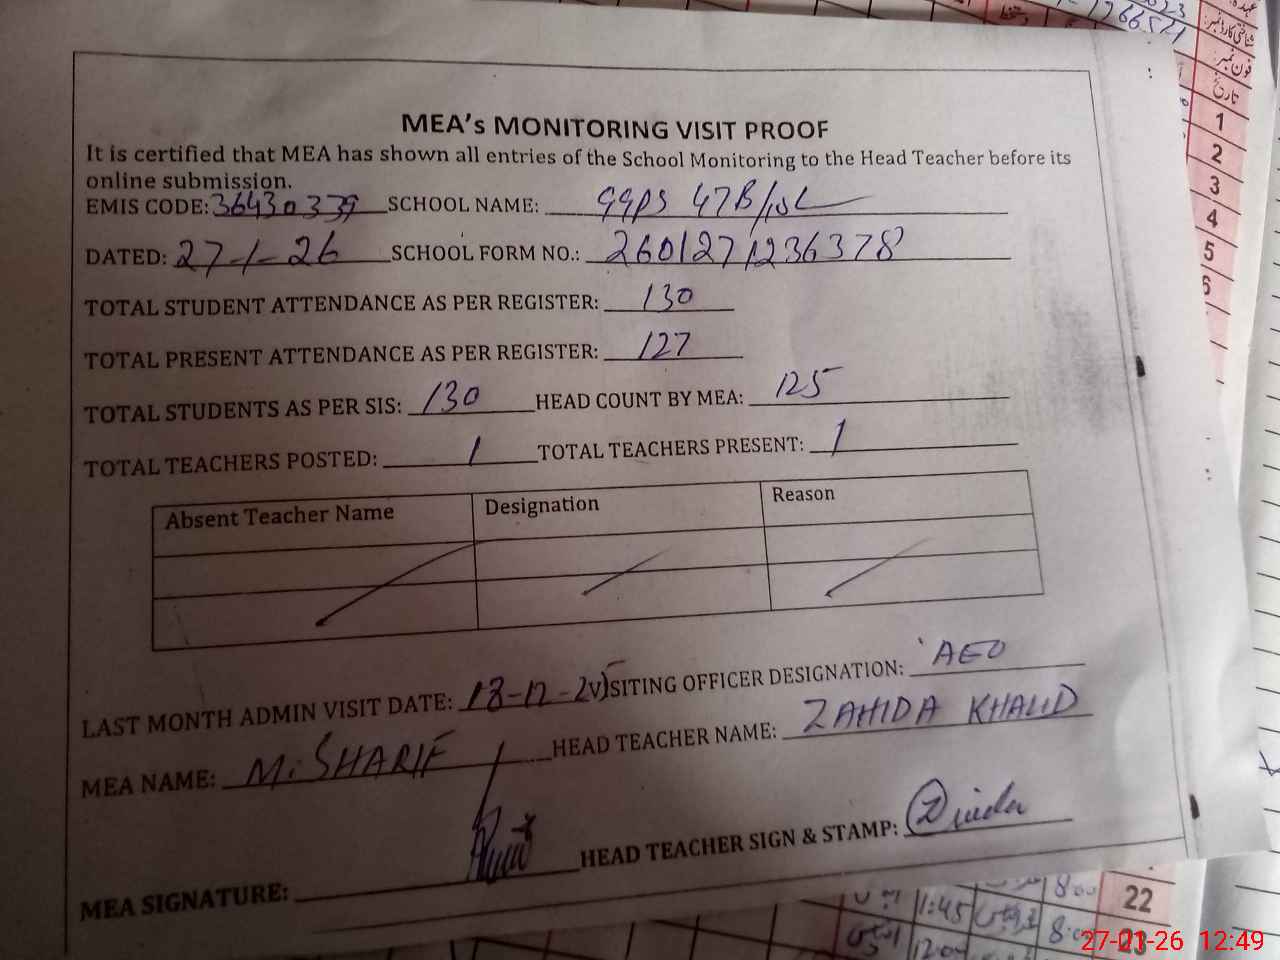 MEA's MONITORING VISIT PROOF
It is certified that MEA has shown all entries of the School Monitoring to the Head Teacher before its
online submission.
EMIS CODE: 36430339 SCHOOL NAME: GGPS 47B/15L
DATED: 27-1-26 SCHOOL FORM NO.: 2601271236378
TOTAL STUDENT ATTENDANCE AS PER REGISTER: 130
TOTAL PRESENT ATTENDANCE AS PER REGISTER: 127
TOTAL STUDENTS AS PER SIS: 130 HEAD COUNT BY MEA: 125
TOTAL TEACHERS POSTED: 1 TOTAL TEACHERS PRESENT: 1
Absent Teacher Name Designation Reason
LAST MONTH ADMIN VISIT DATE: 18-12-25 VISITING OFFICER DESIGNATION: AEO
MEA NAME: M. SHARIF HEAD TEACHER NAME: ZAHIDA KHALID
MEA SIGNATURE: HEAD TEACHER SIGN & STAMP:
شناختی کارڈ نمبر:
فون نمبر:
تاریخ
1
2
3
4
5
6
1:45 8:00 22
12:00 23
27-01-26 12:49